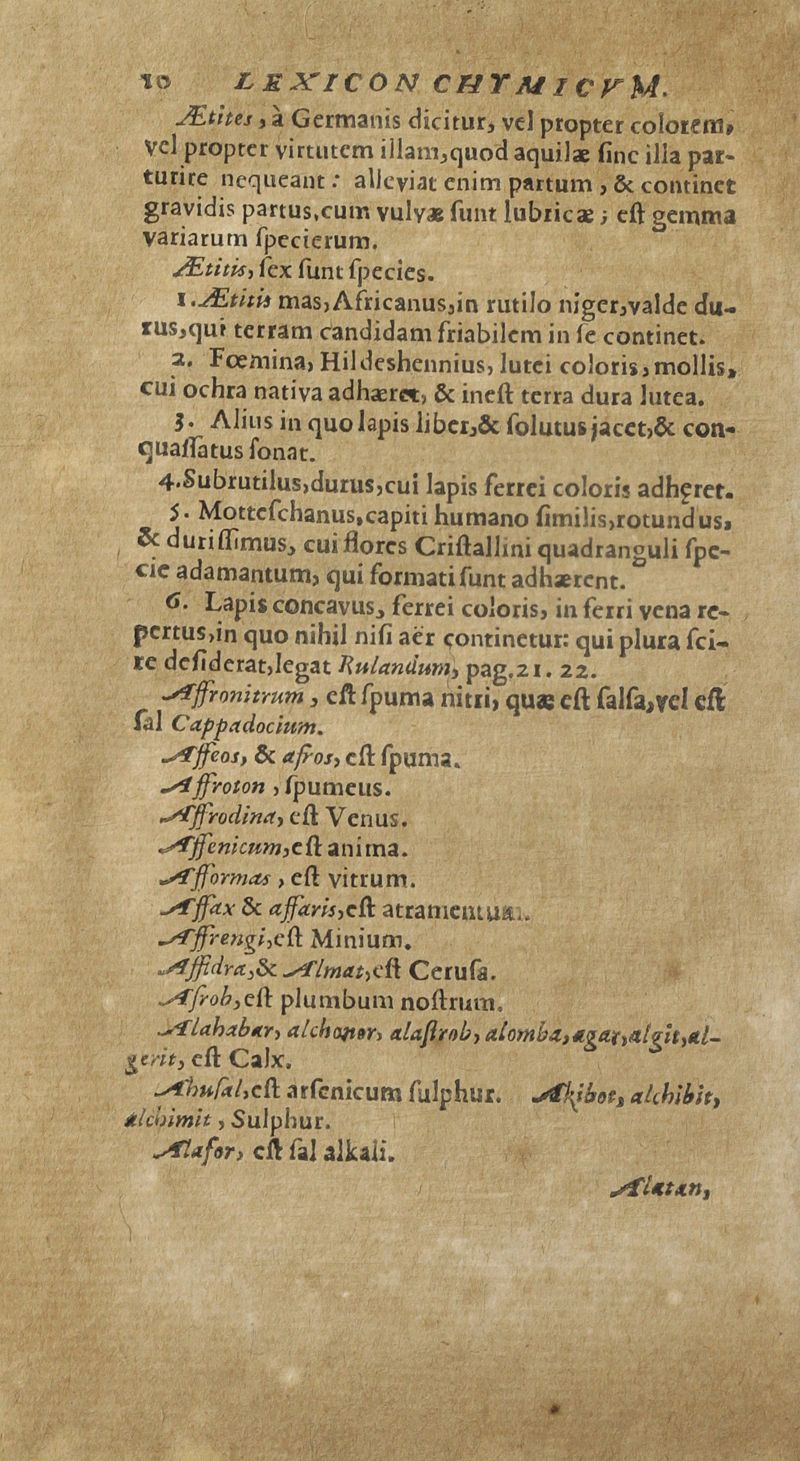 10 LEXICON CHYMICVM.
Ætites, à Germanis dicitur, vel propter colorem,
vel propter virtutem illam, quod aquilæ ſine illa par-
turire nequeant: alleviat enim partum, & continet
gravidis partus, cum vulvæ ſunt lubricæ; eſt gemma
variarum ſpecierum.
Ætitis, ſex ſunt ſpecies.
1. Ætitis mas, Africanus, in rutilo niger, valde du-
rus, qui terram candidam friabilem in ſe continet.
2. Fœmina, Hildeshennius, lutei coloris, mollis,
cui ochra nativa adhæret, & ineſt terra dura lutea.
3. Alius in quo lapis liber, & ſolutus jacet, & con-
quaſſatus ſonat.
4. Subrutilus, durus, cui lapis ferrei coloris adhęret.
5. Motteſchanus, capiti humano ſimilis, rotundus,
& duriſſimus, cui flores Criſtallini quadranguli ſpe-
cie adamantum, qui formati ſunt adhærent.
6. Lapis concavus, ferrei coloris, in ferri vena re-
pertus, in quo nihil niſi aër continetur: qui plura ſci-
re deſiderat, legat Rulandum, pag. 21. 22.
Affronitrum, eſt ſpuma nitri, quæ eſt ſalſa, vel eſt
ſal Cappadocium.
Affeos, & afros, eſt ſpuma.
Affroton, ſpumeus.
Affrodina, eſt Venus.
Aſſenicum, eſt anima.
Afformas, eſt vitrum.
Affax & affaris, eſt atramentum.
Affrengi, eſt Minium.
Affidra, & Almat, eſt Ceruſa.
Afrob, eſt plumbum noſtrum.
Alahabar, alchonor, alaſtrob, alomba, agar, algit, al-
gerit, eſt Calx.
Ahuſal, eſt arſenicum ſulphur. Akibot, alchibit,
alchimit, Sulphur.
Alafor, eſt ſal alkali.
Alatan,